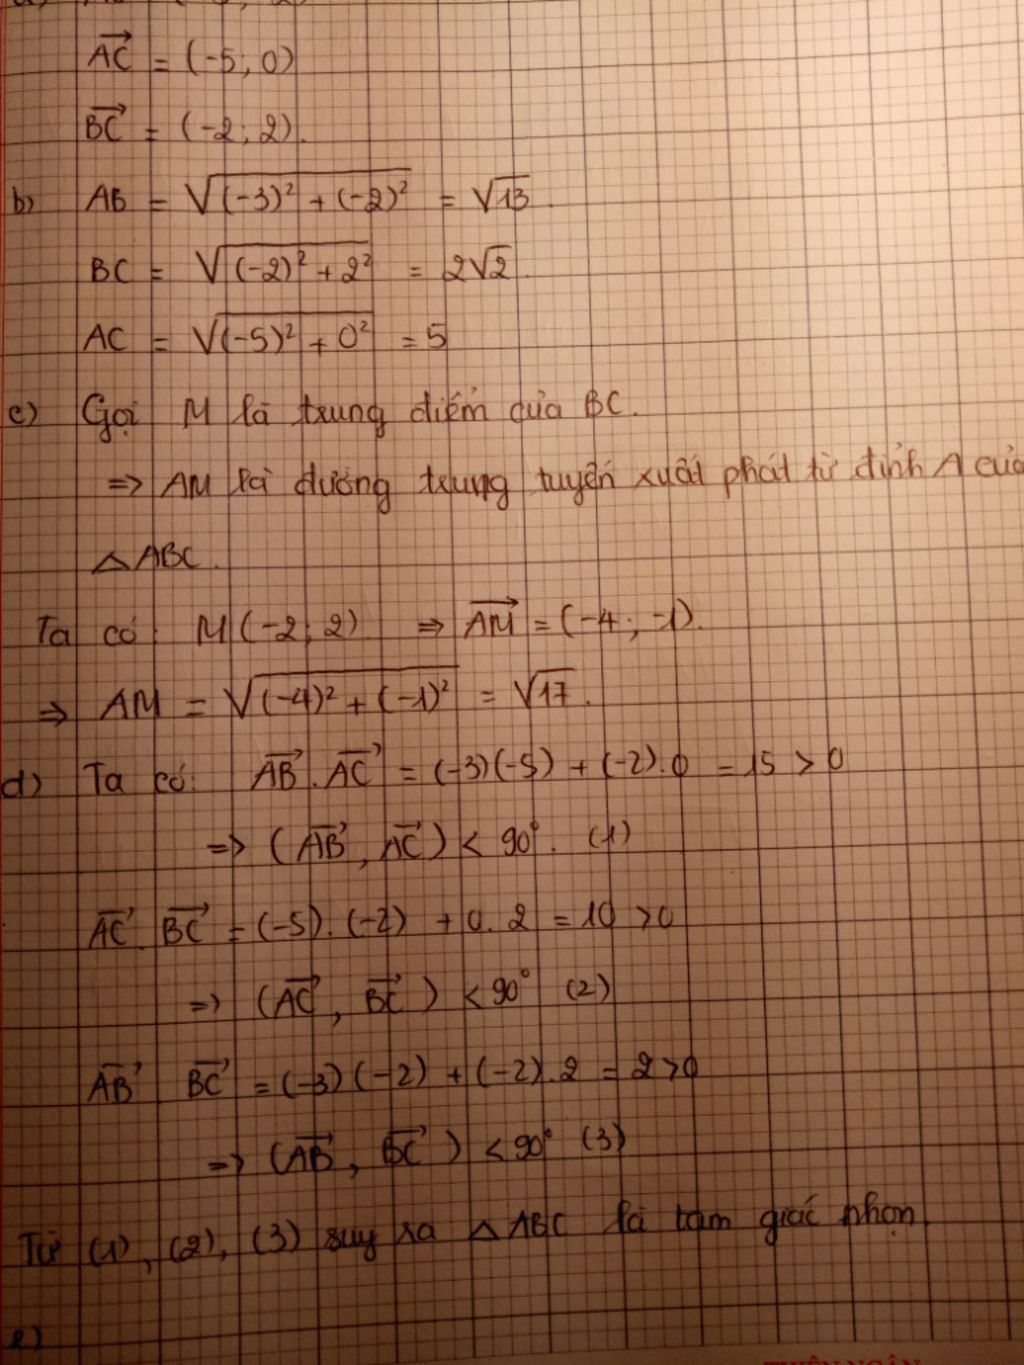 AC = (-5; 0)
BC = (-2; 2).
b) AB = √(-3)² + (-2)² = √13.
BC = √(-2)² + 2² = 2√2.
AC = √(-5)² + 0² = 5
c) Gọi M là trung điểm của BC.
=> AM là đường trung tuyến xuất phát từ đỉnh A của
△ABC.
Ta có: M(-2; 2) => AM = (-4; -1).
=> AM = √(-4)² + (-1)² = √17.
d) Ta có: AB . AC = (-3)(-5) + (-2).0 = 15 > 0
=> (AB, AC) < 90°. (1)
AC . BC = (-5).(-2) + 0.2 = 10 > 0
=> (AC, BC) < 90° (2)
AB BC = (-3)(-2) + (-2).2 = 2 > 0
=> (AB, BC) < 90° (3)
Từ (1), (2), (3) suy ra △ABC là tam giác nhọn.
e)